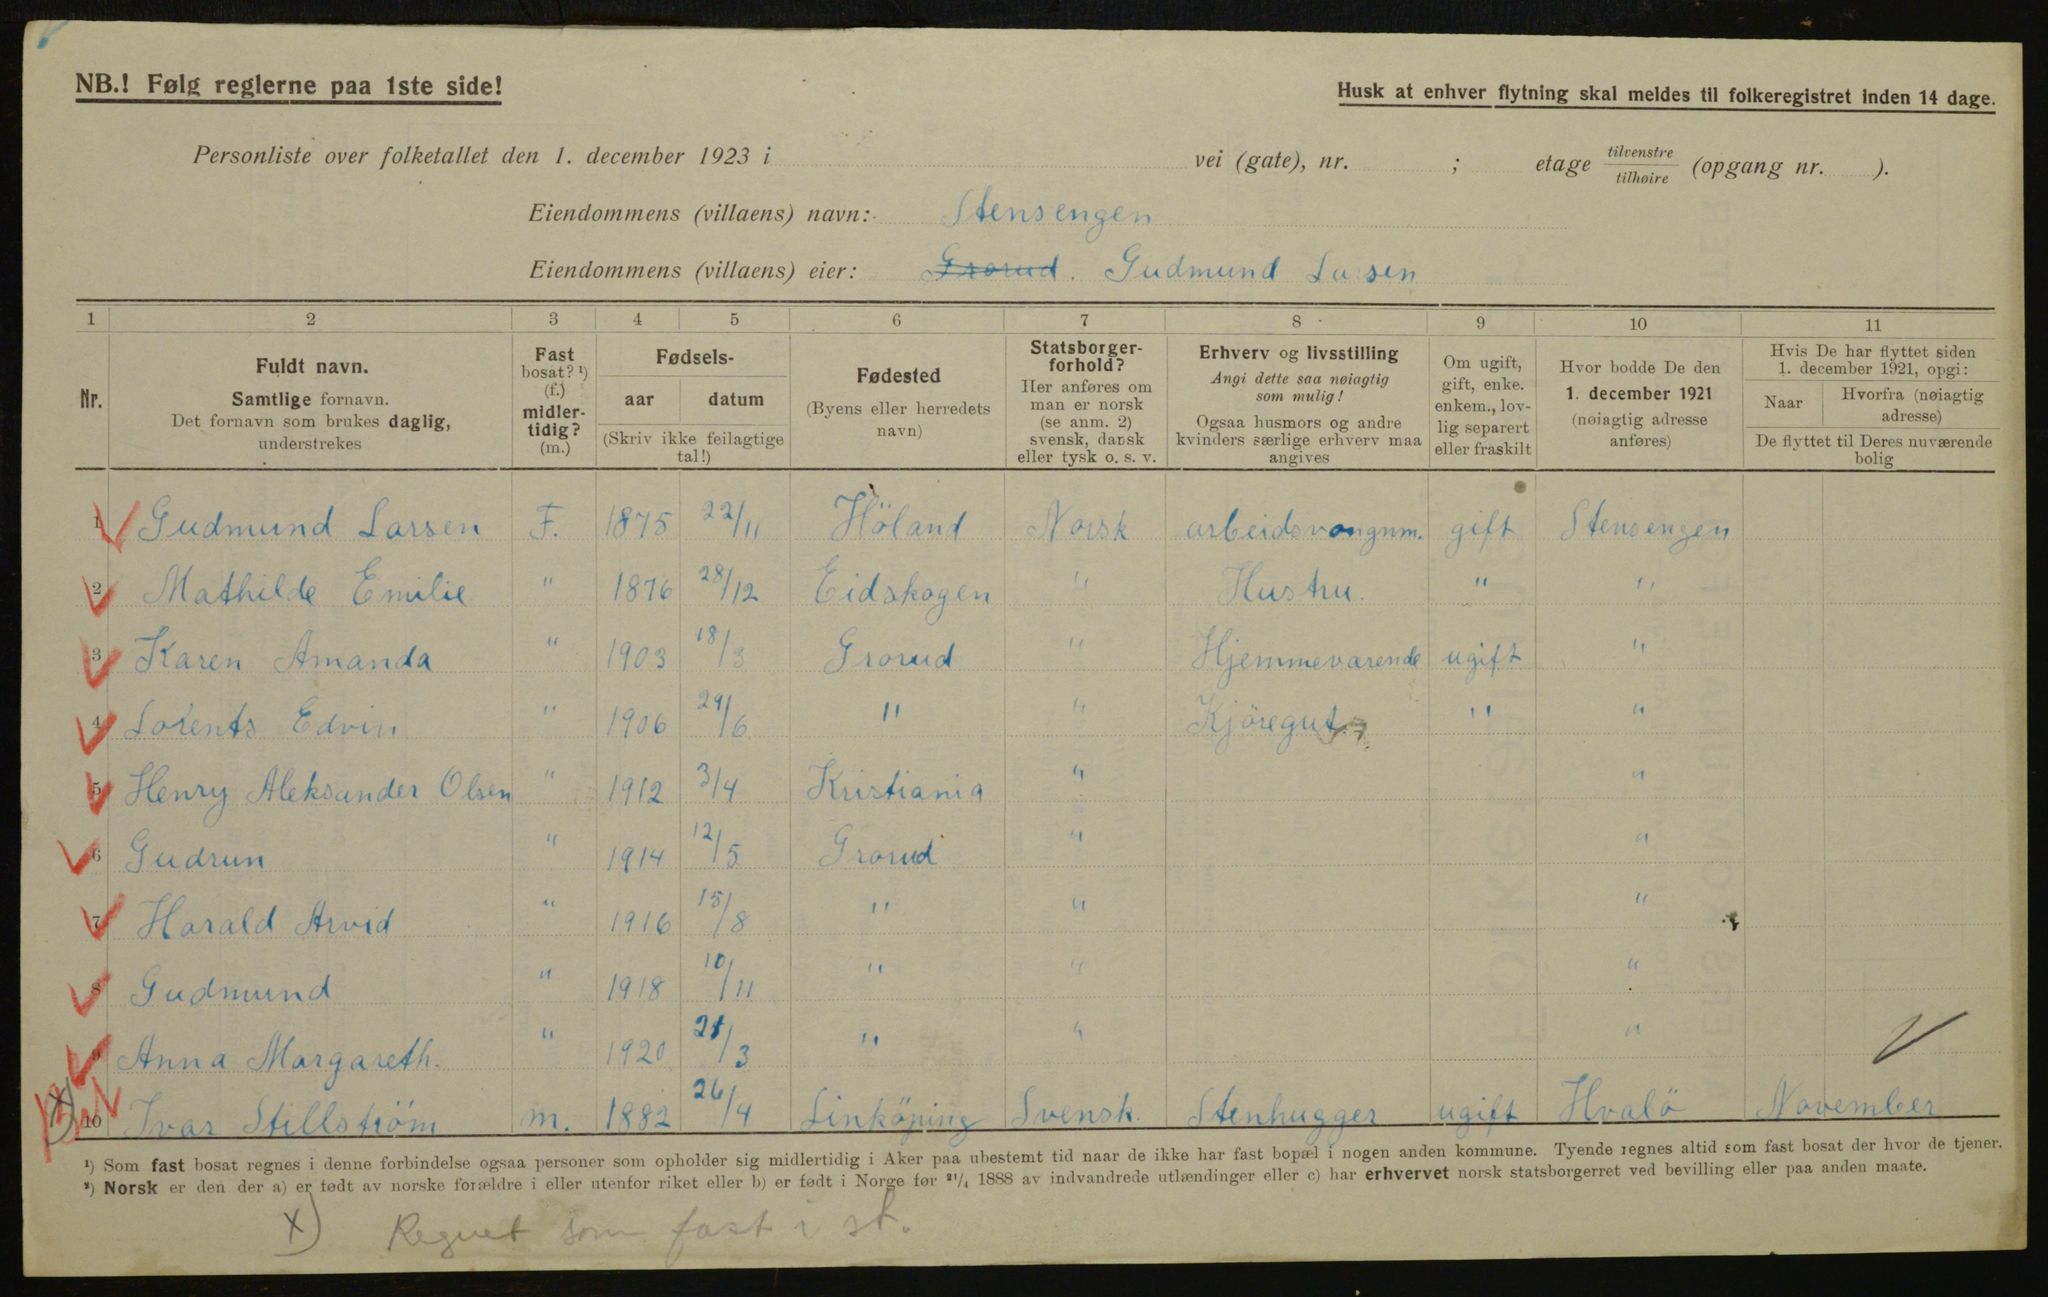 NB.! Følg reglerne paa 1ste side!
Husk at enhver flytning skal meldes til folkeregistret inden 14 dage.
Personliste over folketallet den 1. december 1923 i vei (gate), nr. ; etage tilvenstre/tilhøire (opgang nr. ).
Eiendommens (villaens) navn: Stensengen
Eiendommens (villaens) eier: Grorud. Gudmund Larsen
1 2 3 4 5 6 7 8 9 10 11
Nr.
Fuldt navn.
Samtlige fornavn.
Det fornavn som brukes daglig,
understrekes
Fast
bosat? ¹)
(f.)
midler-
tidig?
(m.)
Fødsels-
aar datum
(Skriv ikke feilagtige
tal!)
Fødested
(Byens eller herredets
navn)
Statsborger-
forhold?
Her anføres om
man er norsk
(se anm. 2)
svensk, dansk
eller tysk o. s. v.
Erhverv og livsstilling
Angi dette saa nøiagtig
som mulig!
Ogsaa husmors og andre
kvinders særlige erhverv maa
angives
Om ugift,
gift, enke.
enkem., lov-
lig separert
eller fraskilt
Hvor bodde De den
1. december 1921
(nøiagtig adresse
anføres)
Hvis De har flyttet siden
1. december 1921, opgi:
Naar
Hvorfra (nøiagtig
adresse)
De flyttet til Deres nuværende
bolig
1 Gudmund Larsen F. 1875 22/11 Höland Norsk arbeidsvongnm. gift Stensengen
2 Mathilde Emilie " 1876 28/12 Eidskogen " Hustru. " "
3 Karen Amanda " 1903 18/3 Grorud " Hjemmeværende ugift "
4 Lorents Edvin " 1906 29/6 " " Kjöregut " "
5 Henry Aleksander Olsen " 1912 3/4 Kristiania " "
6 Gudrun " 1914 12/5 Grorud " "
7 Harald Arvid " 1916 15/8 " " "
8 Gudmund " 1918 10/11 " " "
9 Anna Margareth. " 1920 21/3 " " "
10 Ivar Stillström m. 1882 26/4 Linköping Svensk. Stenhugger ugift Hvalö November
¹) Som fast bosat regnes i denne forbindelse ogsaa personer som opholder sig midlertidig i Aker paa ubestemt tid naar de ikke har fast bopæl i nogen anden kommune. Tyende regnes altid som fast bosat der hvor de tjener.
²) Norsk er den der a) er født av norske forældre i eller utenfor riket eller b) er født i Norge før ²¹/₄ 1888 av indvandrede utlændinger eller c) har erhvervet norsk statsborgerret ved bevilling eller paa anden maate.
x) Regnet som fast i st.